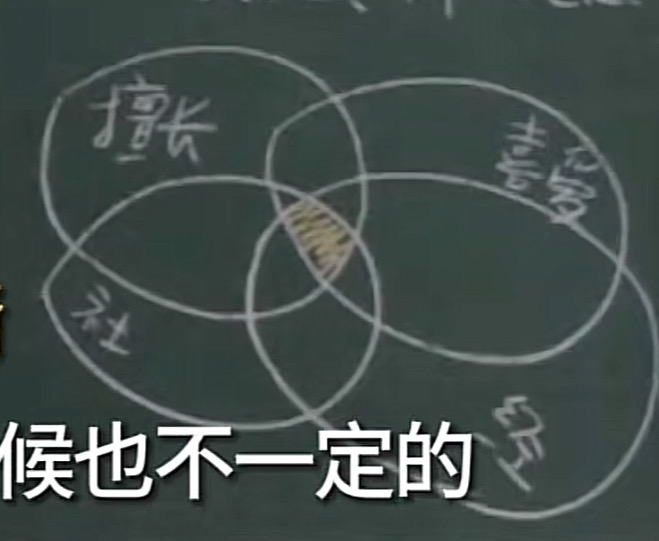 擅长
喜爱
社
经
候也不一定的